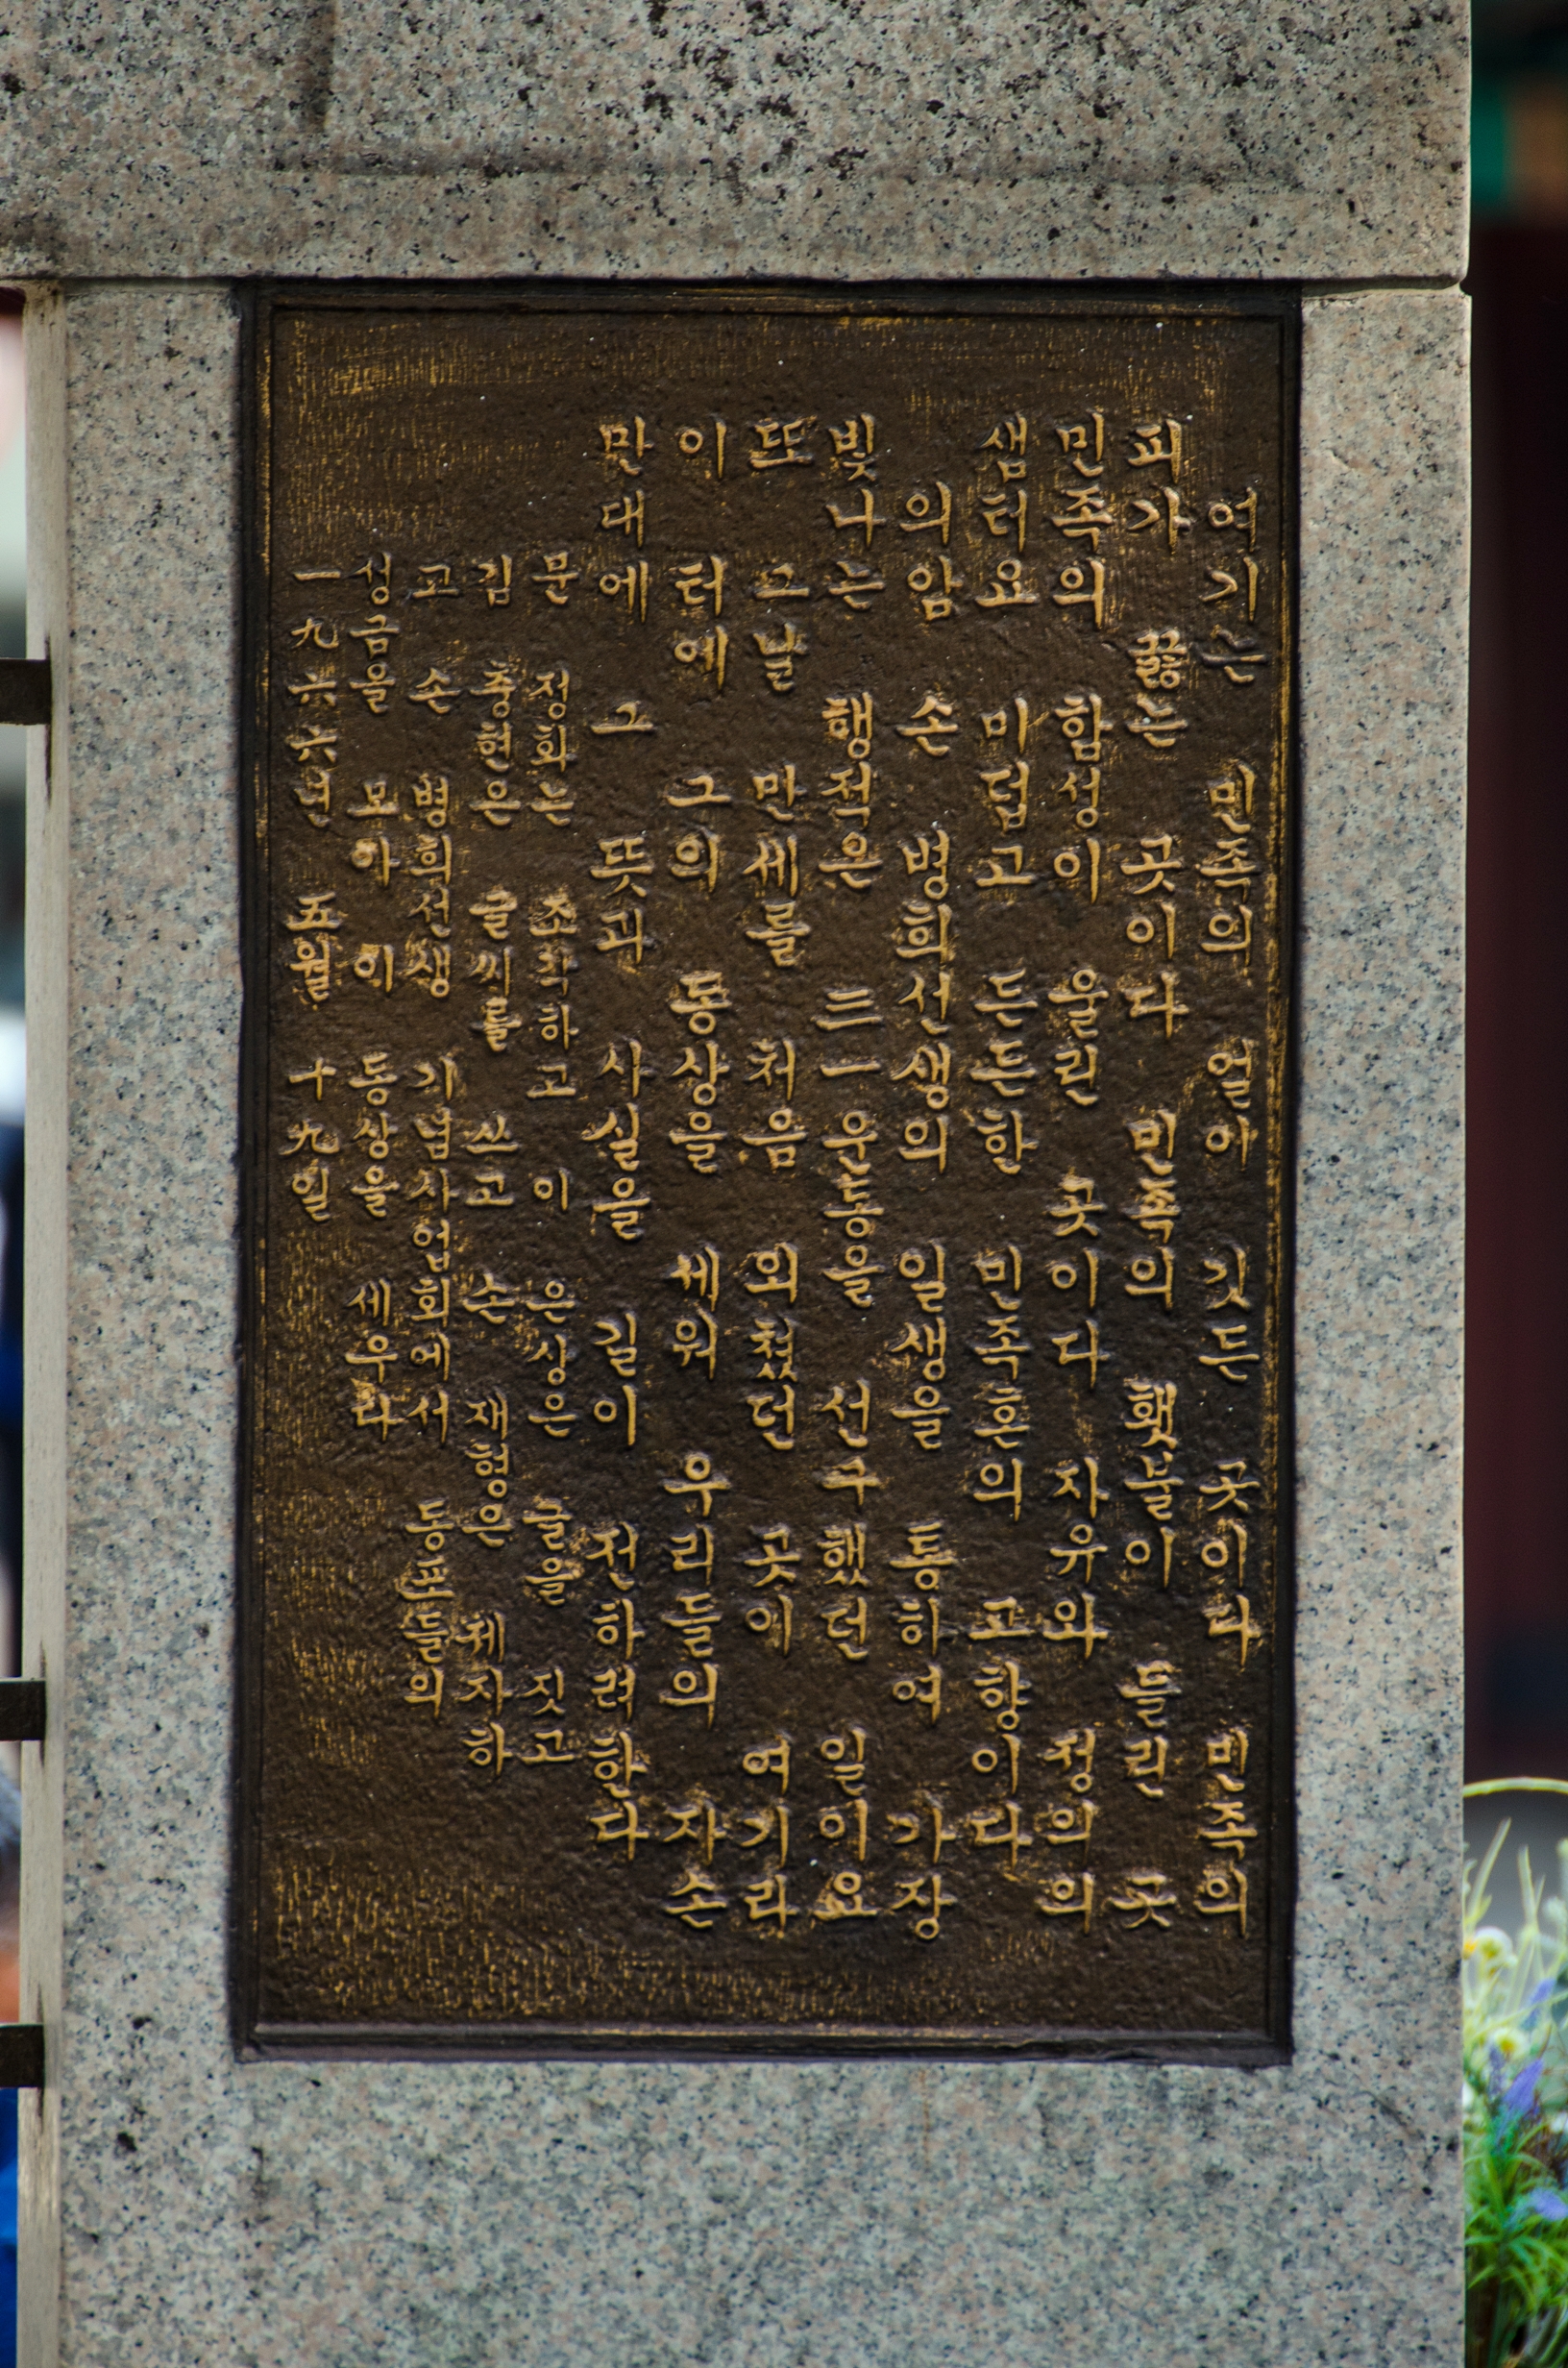 여기는 민족의 얼이 깃든 곳이라 민족의
피가 끓는 곳이다 민족의 햇불이 들린 곳
민족의 함성이 울린 곳이다 자유와 정의의
샘터요 미덥고 든든한 민족혼의 고향이다
의암 손 병희선생의 일생을 통하여 가장
빛나는 행적은 三一 운동을 선구했던 일이요
또 그날 만세를 처음 외쳤던 곳이 여기라
이 터에 그의 동상을 세워 우리들의 자손
만대에 그 뜻과 사실을 길이 전하려한다
문 정화는 조각하고 이 은상은 글을 짓고
김 충현은 글씨를 쓰고 손 재형은 제자하
고 손 병희선생 기념사업회에서 동포들의
성금을 모아 이 동상을 세우다
一九六六년 五월 十九일